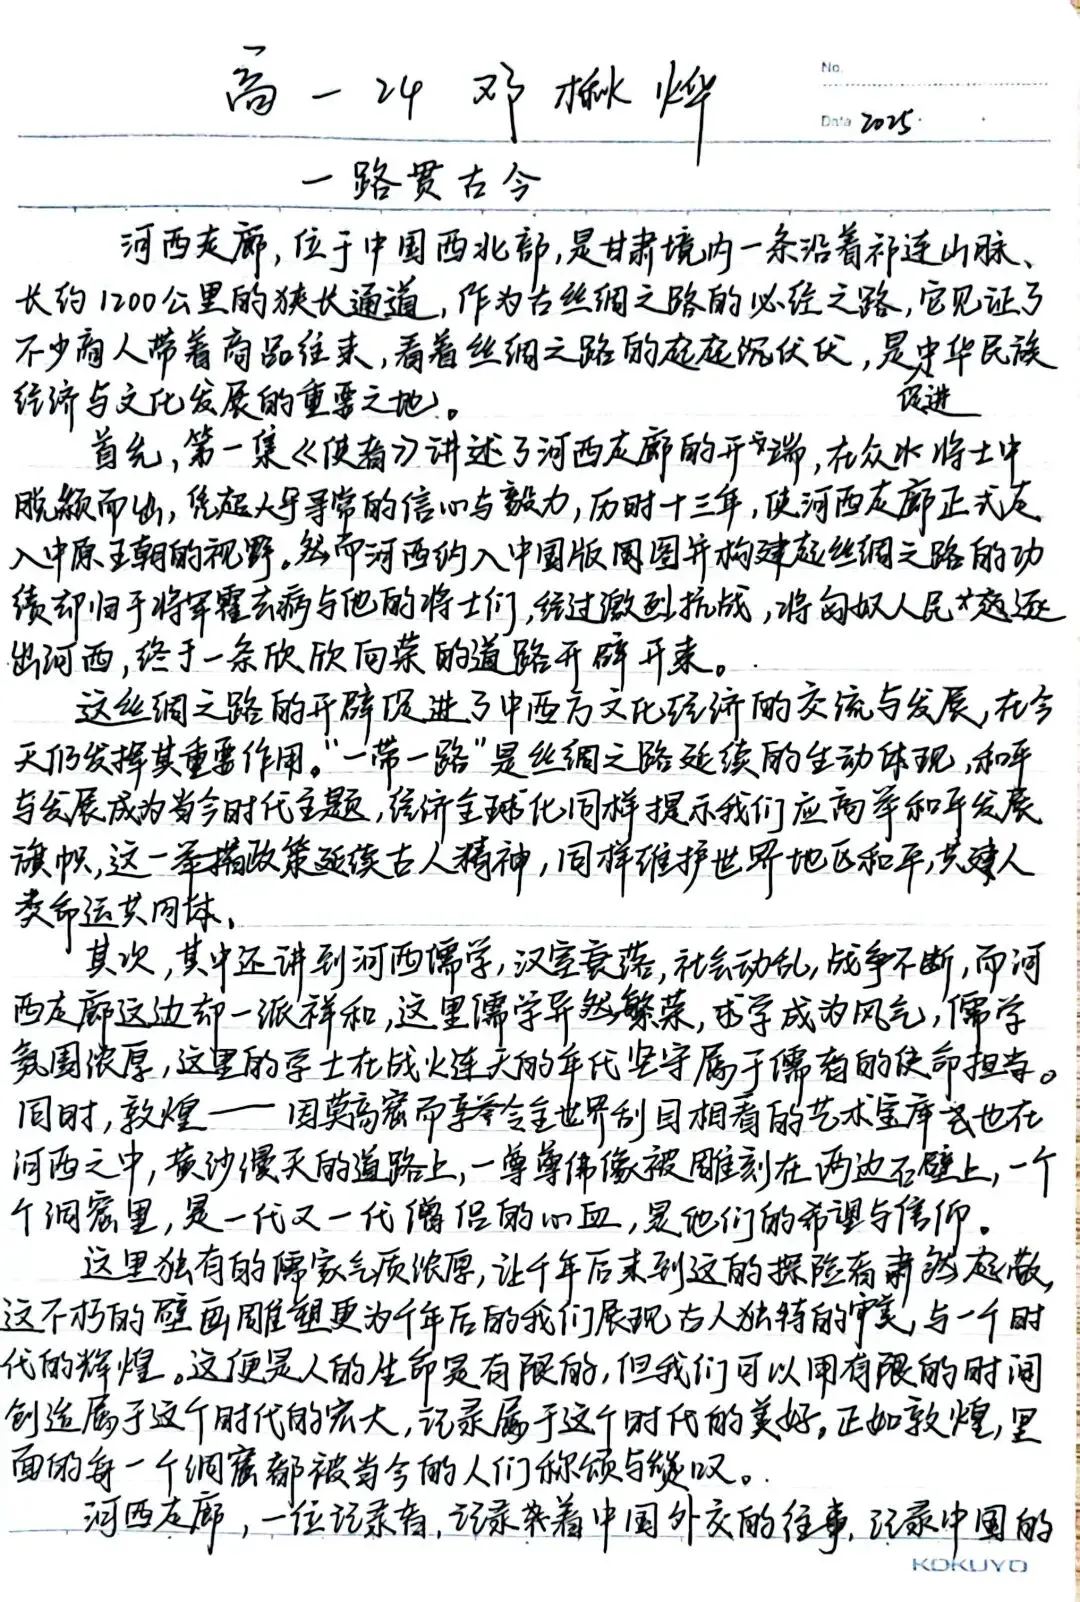 高一24 邓楸烨
No.
Date 2025.
一路贯古今
河西走廊,位于中国西北部,是甘肃境内一条沿着祁连山脉、
长约1200公里的狭长通道,作为古丝绸之路的必经之路,它见证了
不少商人带着商品往来,看着丝绸之路的起起沉伏伏,是中华民族
促进
经济与文化发展的重要之地。
首先,第一集《使者》讲述了河西走廊的开端,在众将士中
脱颖而出,凭超人寻常的信心与毅力,历时十三年,使河西走廊正式走
入中原王朝的视野。然而河西纳入中国版图并构建起丝绸之路的功
绩却归于将军霍去病与他的将士们,经过激烈抗战,将匈奴人民驱逐
出河西,终于一条欣欣向荣的道路开辟开来。
这丝绸之路的开辟促进了中西方文化经济的交流与发展,在今
天仍发挥其重要作用。“一带一路”是丝绸之路延续的生动体现,和平
与发展成为当今时代主题,经济全球化同样提示我们应高举和平发展
旗帜,这一举措政策延续古人精神,同样维护世界地区和平,共建人
类命运共同体。
其次,其中还讲到河西儒学,汉室衰落,社会动乱,战争不断,而河
西走廊这边却一派祥和,这里儒学异然繁荣,求学成为风气,儒学
氛围浓厚,这里的学士在战火连天的年代坚守属于儒者的使命担当。
同时,敦煌——因莫高窟而享誉令全世界刮目相看的艺术宝库也在
河西之中,黄沙漫天的道路上,一尊尊佛像被雕刻在两边石壁上,一个
个洞窟里,是一代又一代僧侣的心血,是他们的希望与信仰。
这里独有的儒家气质浓厚,让千年后来到这的探险者肃然起敬,
这不朽的壁画雕塑更为千年后的我们展现古人独特的审美,与一个时
代的辉煌。这便是人的生命是有限的,但我们可以用有限的时间
创造属于这个时代的宏大,记录属于这个时代的美好。正如敦煌,里
面的每一个洞窟都被当今的人们称颂与赞叹。
河西走廊,一位记录者,记录着中国外交的往事,记录中国的
KOKUYO